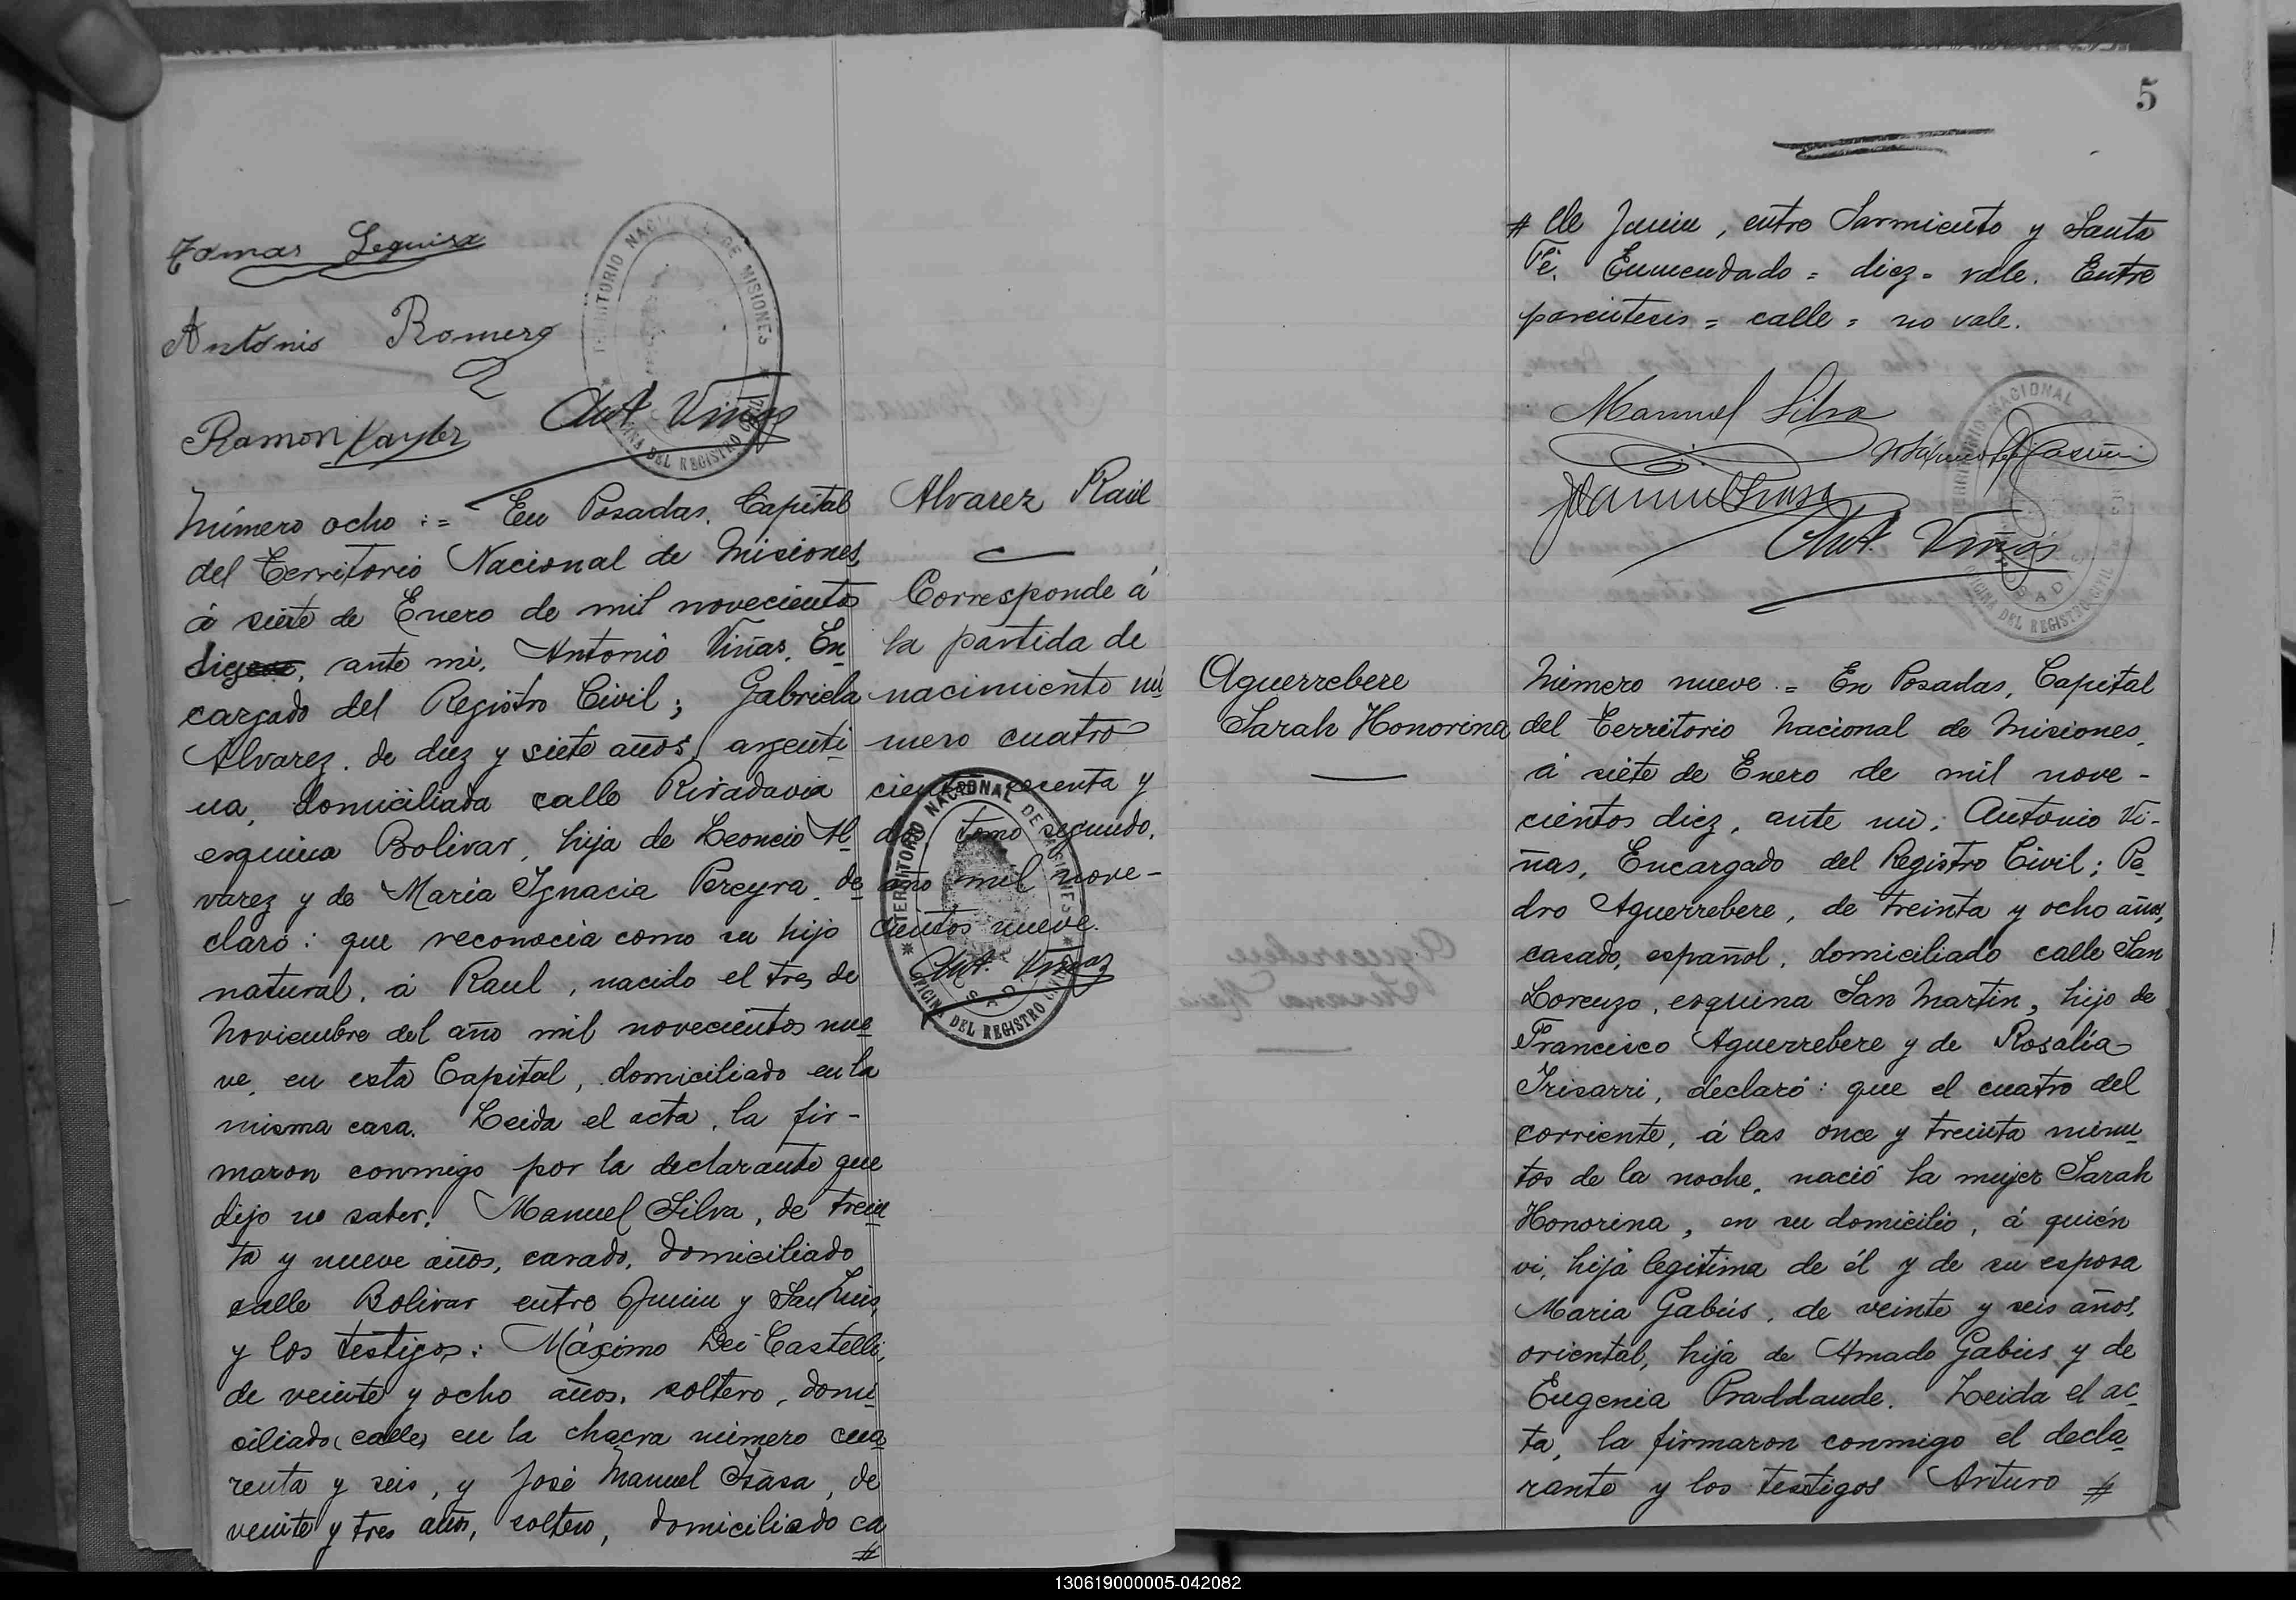 Tomas Leguisa
Antonio Romero
Ramon
Ant. Viñas
TERRITORIO NACIONAL DE MISIONES
OFICINA DEL REGISTRO CIVIL
Número ocho := En Posadas, Capital
del Territorio Nacional de Misiones,
á siete de Enero de mil novecientos
diez, ante mí, Antonio Viñas, En
cargado del Registro Civil; Gabriela
Alvarez, de diez y siete años, argenti
na, domiciliada calle Rivadavia
esquina Bolivar, hija de Leoncio Al
varez y de Maria Ignacia Pereyra, de
claró: que reconocia como su hijo
natural, á Raul, nacido el tres de
Noviembre del año mil novecientos nue
ve, en esta Capital, domiciliado en la
misma casa. Leida el acta, la fir-
maron conmigo por la declarante que
dijo no saber, Manuel Silva, de trein
ta y nueve años, casado, domiciliado
calle Bolivar entre Junin y San Luis,
y los testigos: Máximo Dei Castelli,
de veinte y ocho años, soltero, domi
ciliado (calle) en la chacra número cua
renta y seis, y José Manuel Isasa, de
veinte y tres años, soltero, domiciliado ca
#
Alvarez Raúl
Corresponde á
la partida de
nacimiento nú
mero cuatro
cientos sesenta y
dos, tomo segundo,
año mil nove-
cientos nueve.
Ant. Viñas
TERRITORIO NACIONAL DE MISIONES
OFICINA DEL REGISTRO CIVIL
POSADAS
5
# lle Junin, entre Sarmiento y Santa
Fé. Enmendado = diez = vale. Entre
parentesis = calle = no vale.
Manuel Silva
Ant. Viñas
TERRITORIO NACIONAL DE MISIONES
OFICINA DEL REGISTRO CIVIL
POSADAS
Aguerrebere
Sarah Honorina
Número nueve = En Posadas, Capital
del Territorio Nacional de Misiones,
á siete de Enero de mil nove-
cientos diez, ante mí; Antonio Vi-
ñas, Encargado del Registro Civil; Pe
dro Aguerrebere, de treinta y ocho años,
casado, español, domiciliado calle San
Lorenzo, esquina San Martin, hijo de
Francisco Aguerrebere y de Rosalía
Irisarri, declaró: que el cuatro del
corriente, á las once y treinta minu
tos de la noche, nació la mujer Sarah
Honorina, en su domicilio, á quién
vi, hija legitima de él y de su esposa
Maria Gabús, de veinte y seis años,
oriental, hija de Amado Gabús y de
Eugenia Praddaude. Leida el ac
ta, la firmaron conmigo el decla
rante y los testigos Arturo #
130619000005-042082